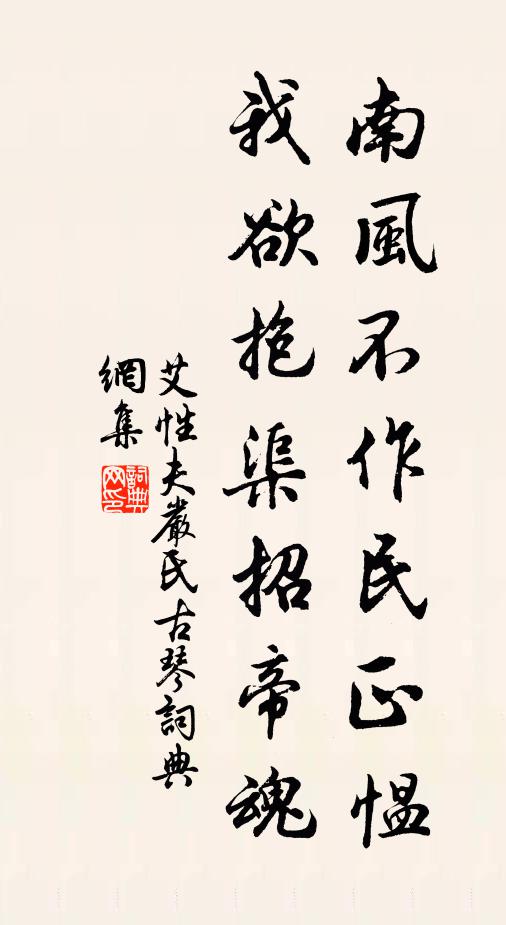 南風不作民正愠
我欲抱渠招帝魂
艾性夫嚴民古琴詞典
網集
詞典网印